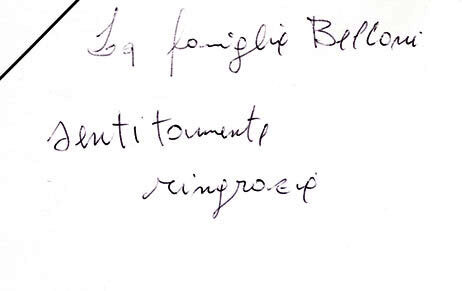 La famiglia Belloni
sentitamente
ringrazia